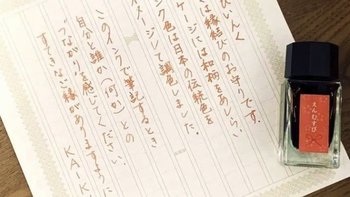 びいんく
は縁結びのお守りです。
ケージには和柄をあしらい
ンク色は日本の伝統色を
メージして調色しました。
このインクで筆記するとき
自分と誰か(何か)との
つながりを感じてください。
すてきなご縁がありますように
KAIK
えんむすび